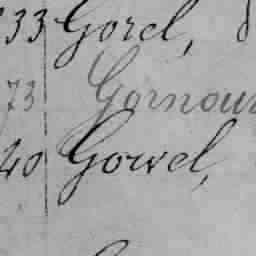 33 Gorel,
73 Gornour
40 Gowel,